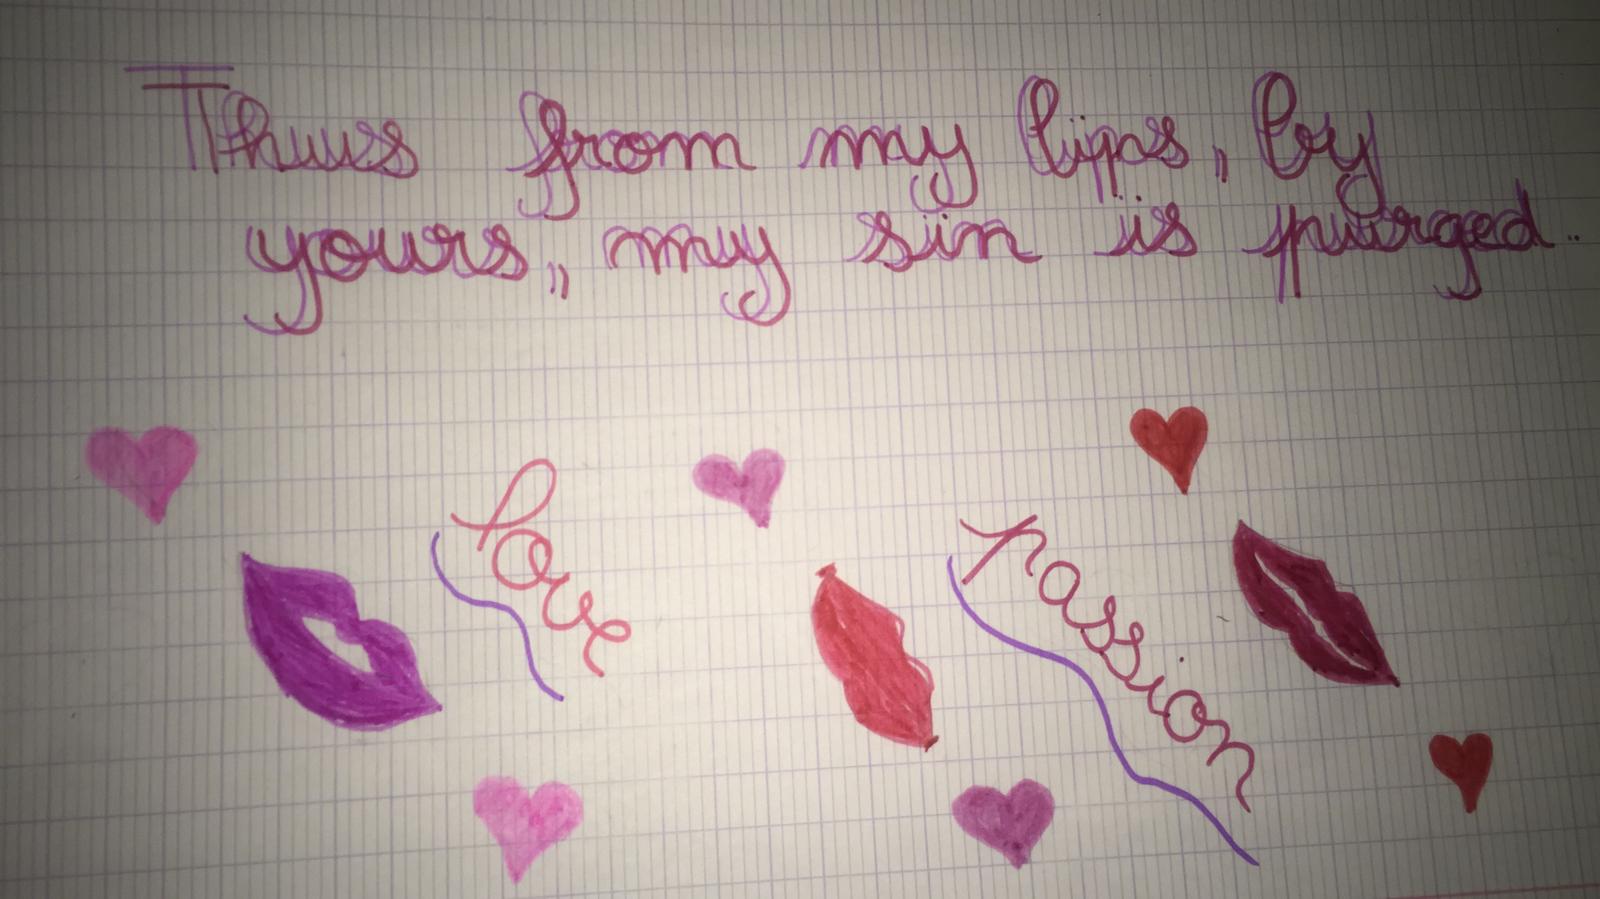 Thus from my lips, by
yours, my sin is purged.
love
passion